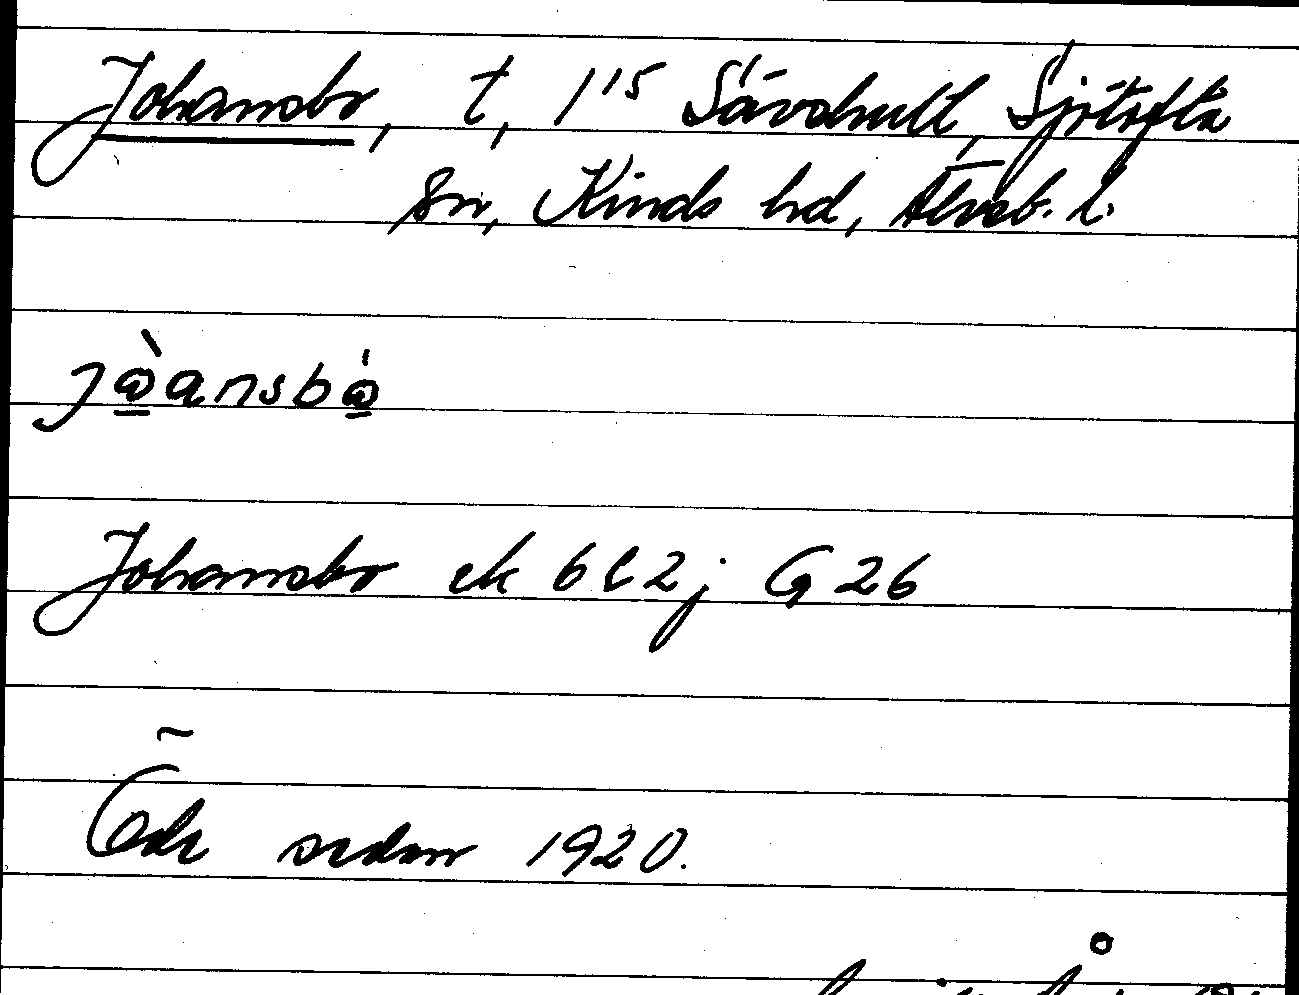 Johansbo, t, 1/15 Sävshult, Sjötofta
sn, Kinds hd, Älvsb. l.
jàansbá
Johansbo ek 6C2j G26
Öde sedan 1920.